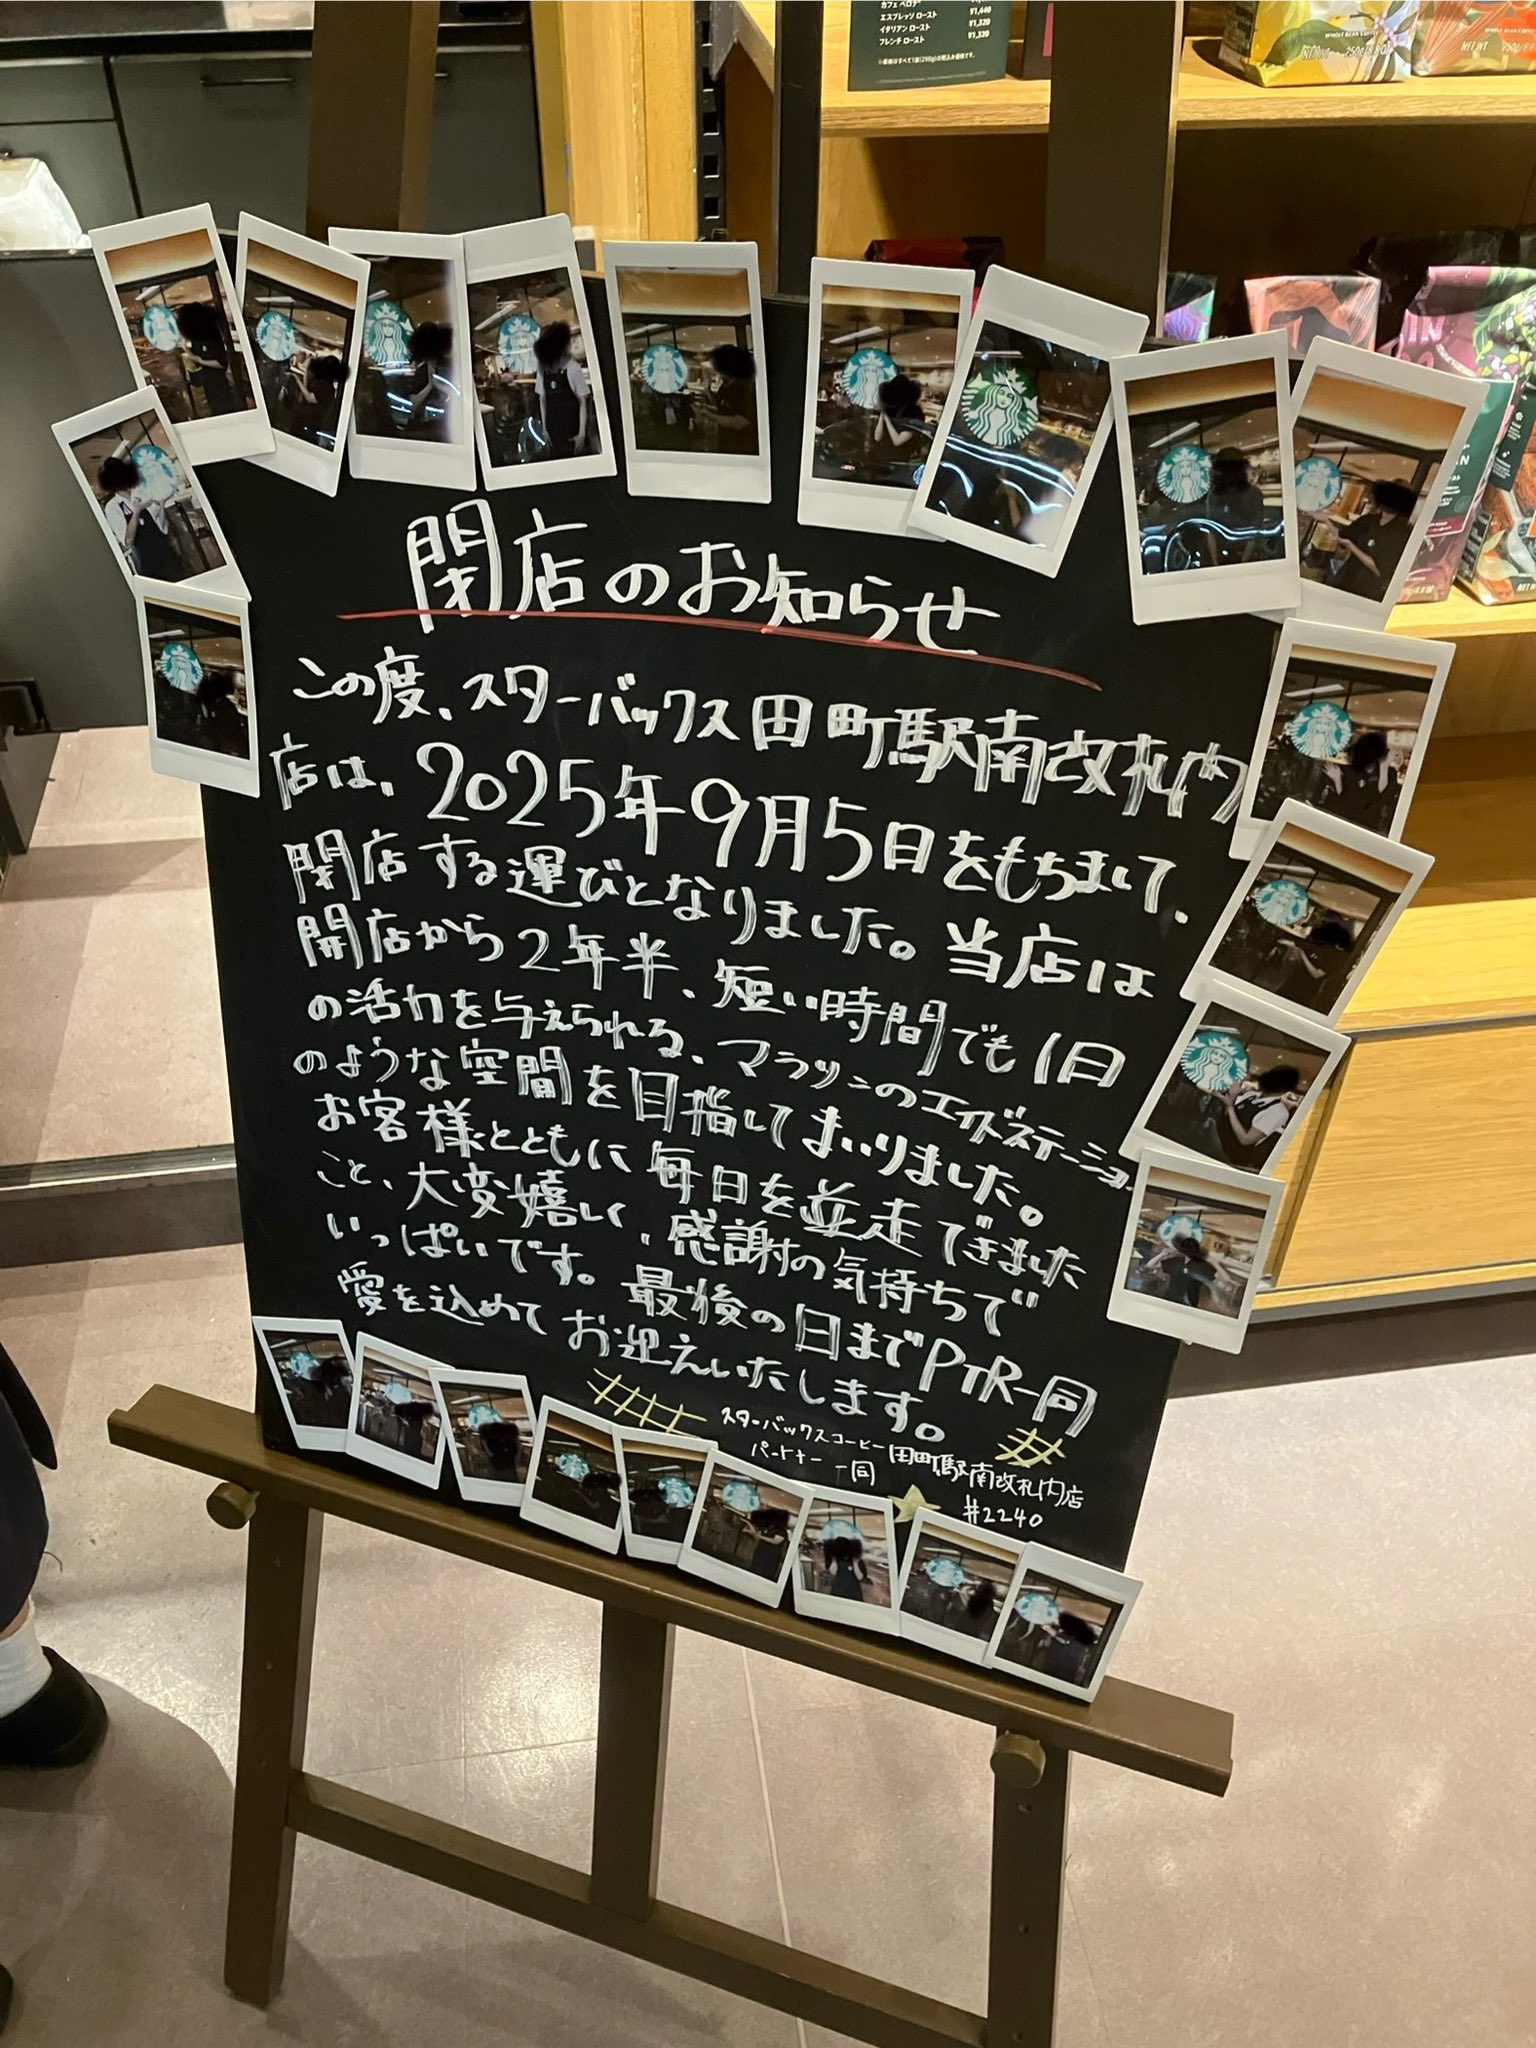 カフェ ベロナ®
¥1,440
エスプレッソ ロースト
¥1,320
イタリアン ロースト
¥1,320
フレンチ ロースト
¥1,320
※価格はすべて1袋(250g)の税込み価格です。
WHOLE BEAN COFFEE
閉店のお知らせ
この度、スターバックス田町駅南改札内
店は、2025年9月5日をもちまして、
閉店する運びとなりました。当店は
開店から2年半、短い時間でも1日
の活力を与えられる、マラソンのエイドステーション
のような空間を目指してまいりました。
お客様とともに毎日を並走できました
こと、大変嬉しく、感謝の気持ちで
いっぱいです。最後の日までPTR一同
愛を込めてお迎えいたします。
スターバックスコーヒー田町駅南改札内店
パートナー一同
#2240